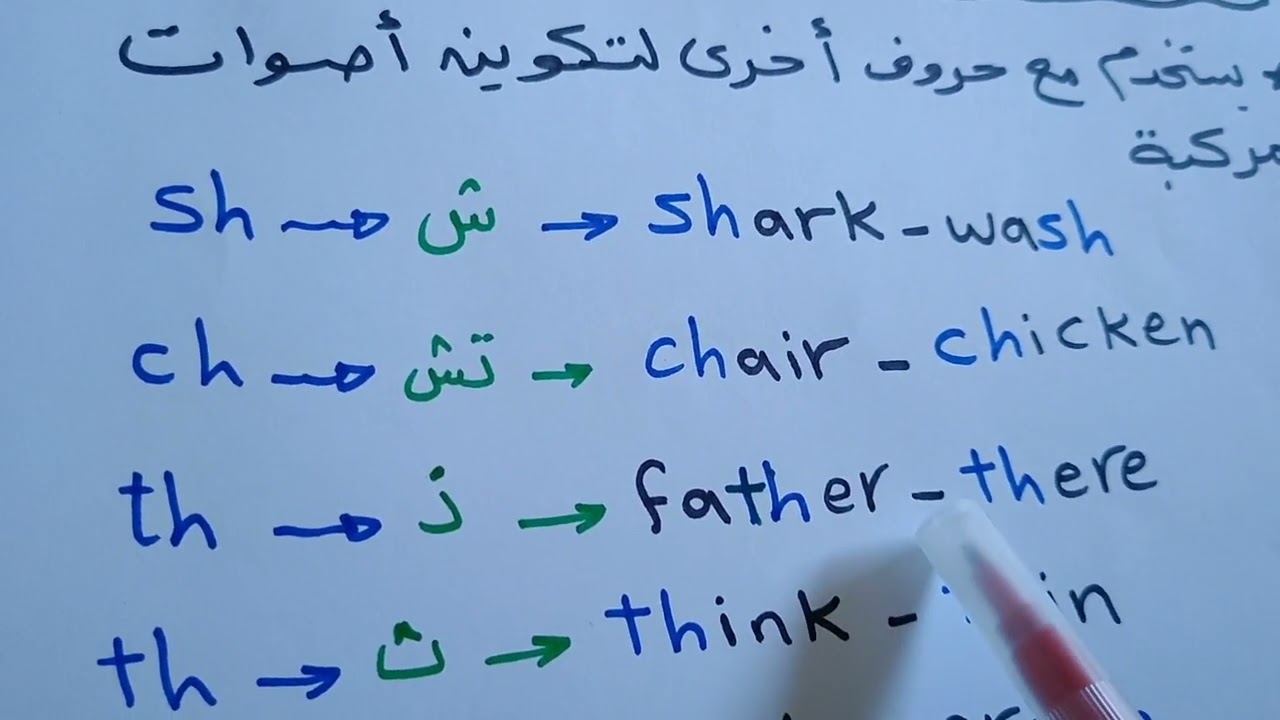 يستخدم مع حروف أخرى لتكوين أصوات
مركبة
sh → ش → shark - wash
ch → تش → chair - chicken
th → ذ → father - there
th → ث → think -